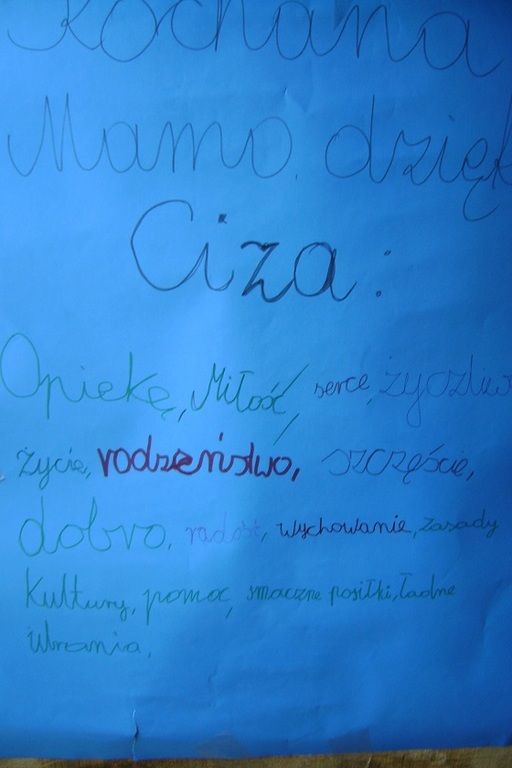 Kochana
Mamo, dzięk
Ci za:
Opiekę, Miłość, serce, życzliwo
życie, rodzeństwo, szczęście,
dobro, radość, wychowanie, zasady
kultury, pomoc, smaczne posiłki, ładne
ubrania,